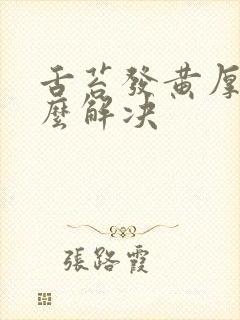 舌苔發黃厚
麼解決
張路霞